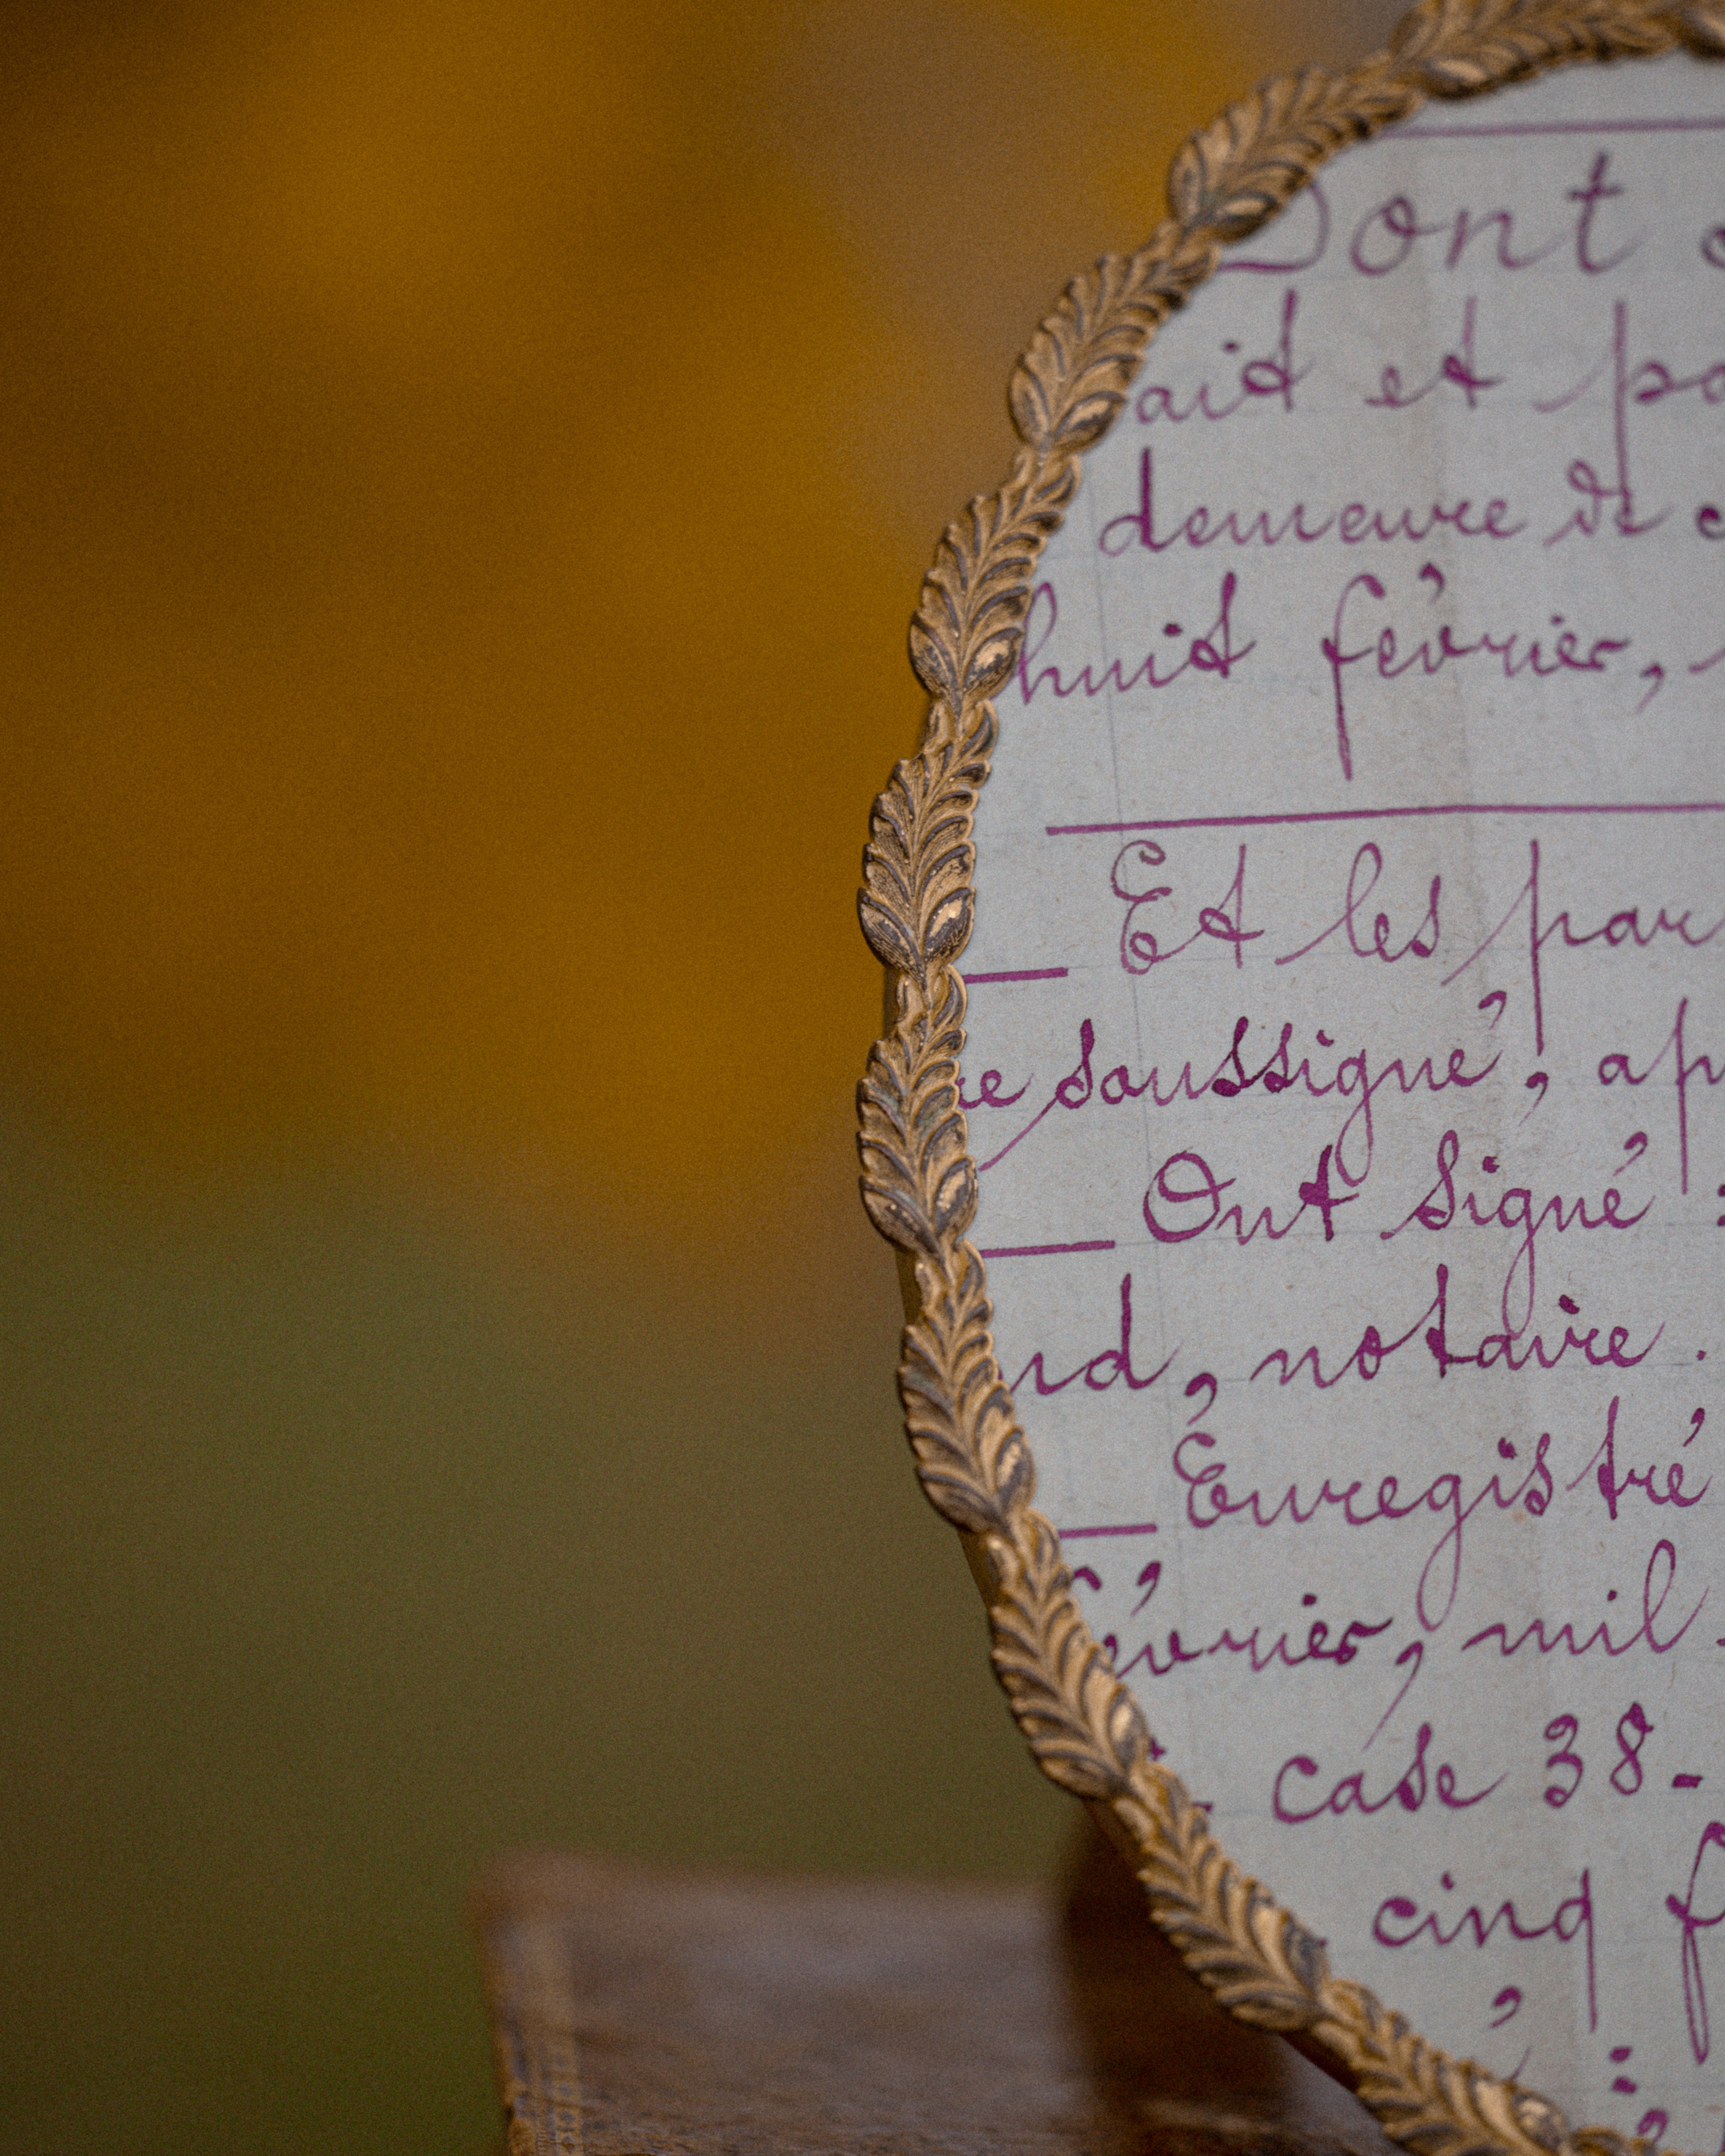 Dont
ait et
demeure de
huit février,
Et les par
re soussigné, ap
Ont signé :
nd, notaire.
Enregistré
février, mil
case 38-
cinq f